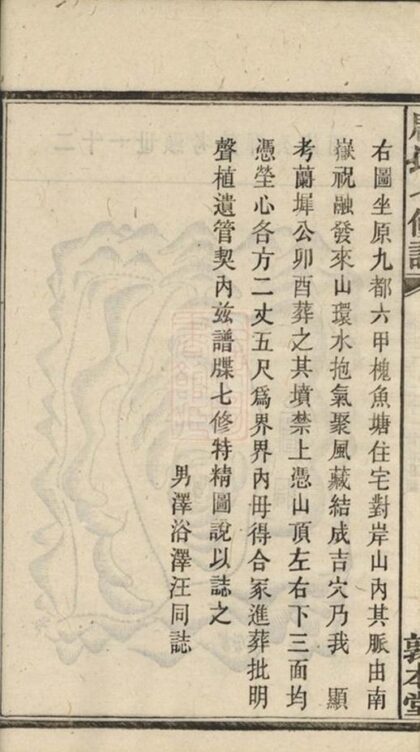 右圖坐原九都六甲槐魚塘住宅對岸山內其脈由南
嶽祝融發來山環水抱氣聚風藏結成吉穴乃我 顯
考蘭墀公卯酉葬之其墳禁上憑山頂左右下三面均
憑塋心各方二丈五尺爲界界內毋得合冢進葬批明
聲植遺管契內玆譜牒七修特精圖說以誌之
男澤浴澤汪同誌
敦本堂